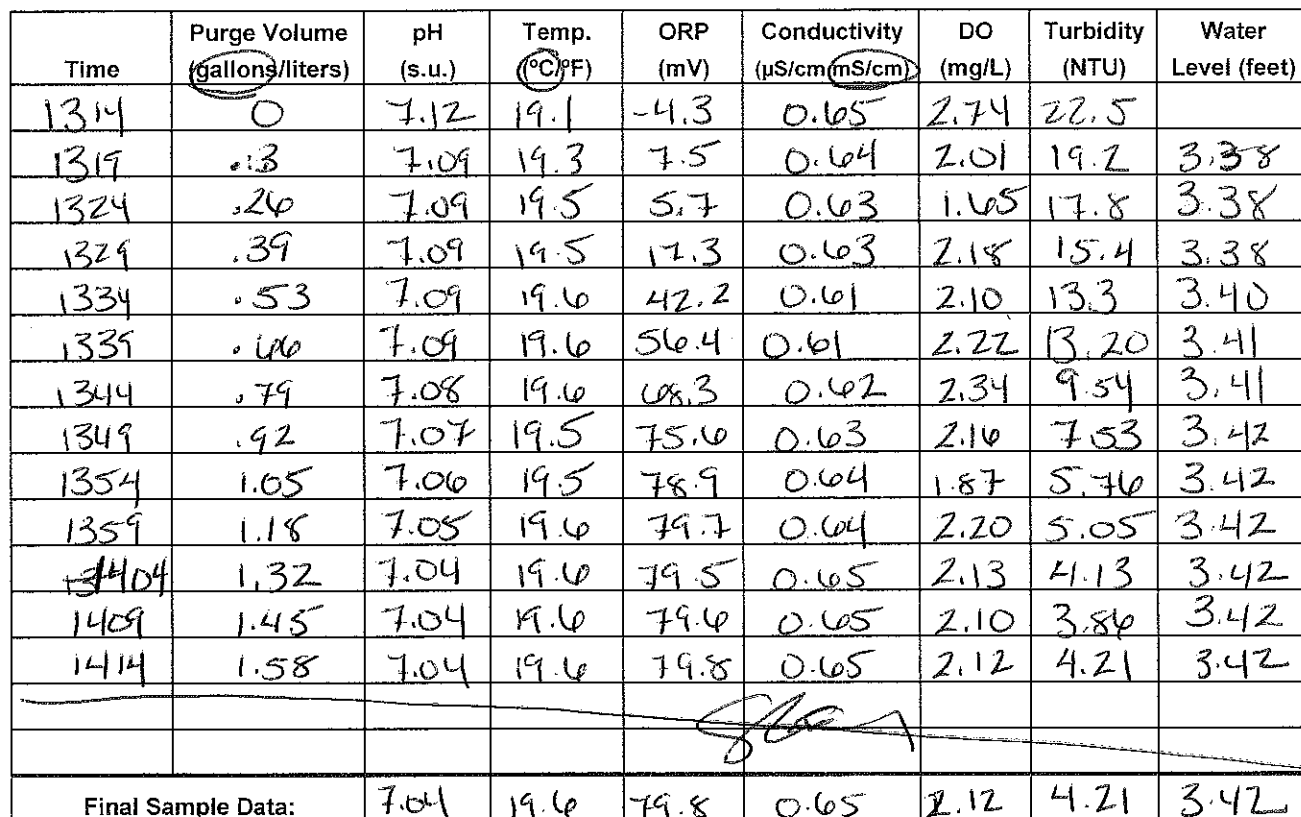 Time Purge Volume (gallons/liters) pH (s.u.) Temp. (°C/°F) ORP (mV) Conductivity (µS/cm/mS/cm) DO (mg/L) Turbidity (NTU) Water Level (feet)
1314 0 7.12 19.1 -4.3 0.65 2.74 22.5
1319 .13 7.09 19.3 7.5 0.64 2.01 19.2 3.38
1324 .26 7.09 19.5 5.7 0.63 1.65 17.8 3.38
1329 .39 7.09 19.5 17.3 0.63 2.18 15.4 3.38
1334 .53 7.09 19.6 42.2 0.61 2.10 13.3 3.40
1339 .66 7.09 19.6 56.4 0.61 2.22 13.20 3.41
1344 .79 7.08 19.6 68.3 0.62 2.34 9.54 3.41
1349 .92 7.07 19.5 75.6 0.63 2.16 7.53 3.42
1354 1.05 7.06 19.5 78.9 0.64 1.87 5.76 3.42
1359 1.18 7.05 19.6 79.7 0.64 2.20 5.05 3.42
1404 1.32 7.04 19.6 79.5 0.65 2.13 4.13 3.42
1409 1.45 7.04 19.6 79.6 0.65 2.10 3.86 3.42
1414 1.58 7.04 19.6 79.8 0.65 2.12 4.21 3.42
Final Sample Data: 7.04 19.6 79.8 0.65 2.12 4.21 3.42